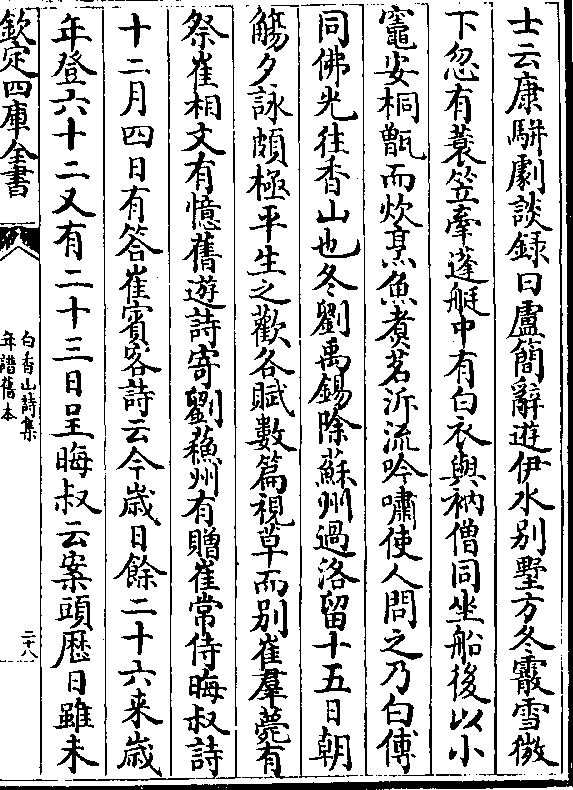 士云康駢劇談録曰盧簡辭遊伊水别墅方冬霰雪微
下忽有蓑笠牽蓬艇中有白衣與衲僧同坐船後以小
竈安桐甑而炊烹魚煮茗泝流吟嘯使人問之乃白傅
同佛光往香山也冬劉禹錫除蘇州過洛留十五日朝
觴夕詠頗極平生之歡各賦數篇視草而别崔羣薨有
祭崔相文有憶舊遊詩寄劉蘓州有贈崔常侍晦叔詩
十二月四日有答崔賓客詩云今歳日餘二十六来歳
年登六十二又有二十三日呈晦叔云案頭歴日雖未
欽定四庫全書
白香山詩集
年譜舊本
二十八